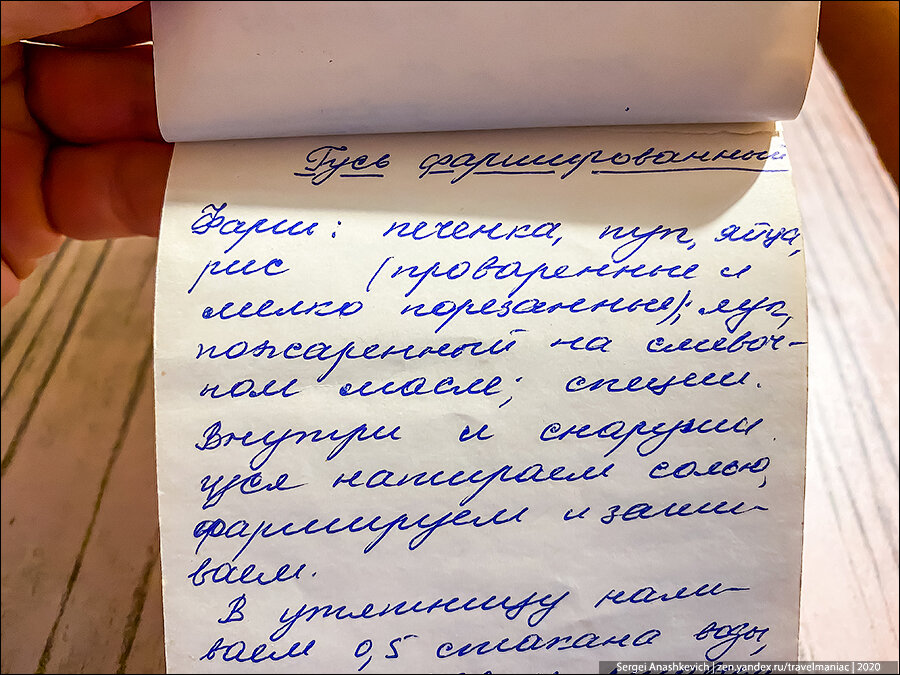 Гусь фаршированный
Фарш: печенка, пуп, яйца,
рис (проваренные и
мелко порезанные); лук,
пожаренный на сливоч-
ном масле; специи.
Внутри и снаружи
гуся натираем солью,
фаршируем и заши-
ваем.
В утятницу нали-
ваем 0,5 стакана воды,
Sergei Anashkevich | zen.yandex.ru/travelmaniac | 2020